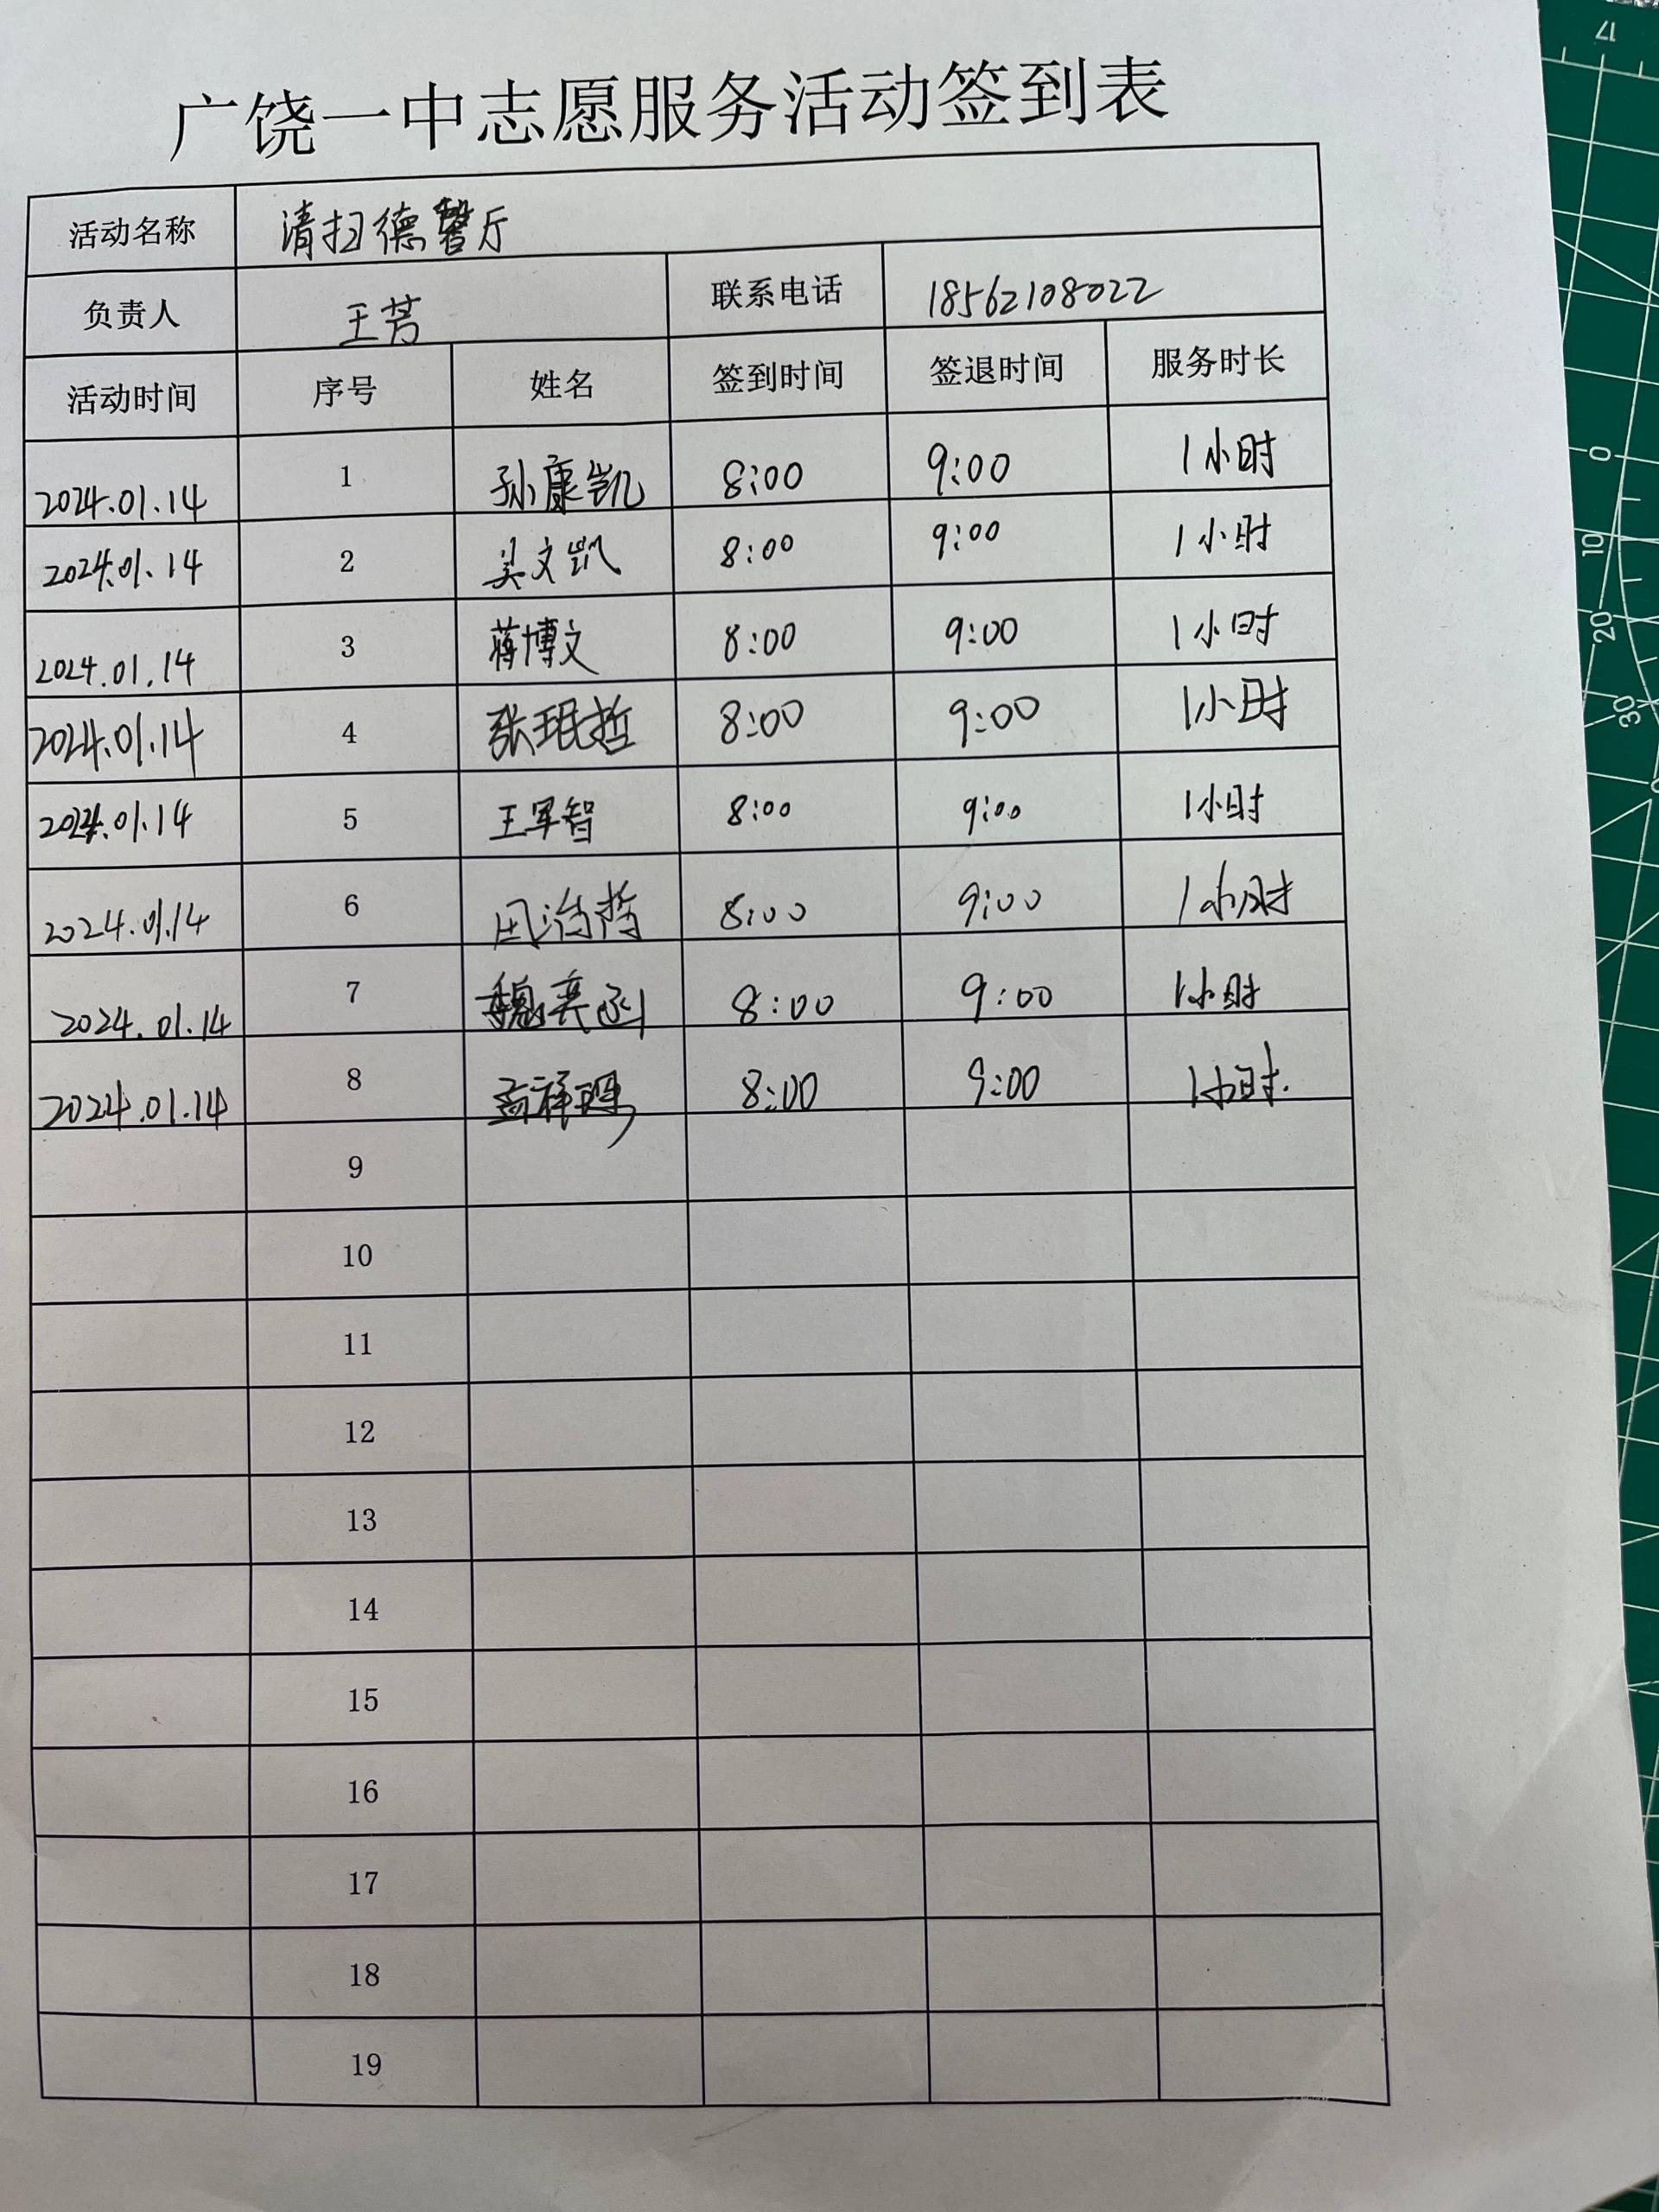 广饶一中志愿服务活动签到表
活动名称 清扫德馨厅
负责人 王芳 联系电话 18562108022
活动时间 序号 姓名 签到时间 签退时间 服务时长
2024.01.14 1 孙康凯 8:00 9:00 1小时
2024.01.14 2 吴文凯 8:00 9:00 1小时
2024.01.14 3 蒋博文 8:00 9:00 1小时
2024.01.14 4 张珉哲 8:00 9:00 1小时
2024.01.14 5 王军智 8:00 9:00 1小时
2024.01.14 6 8:00 9:00 1小时
2024.01.14 7 魏奕函 8:00 9:00 1小时
2024.01.14 8 8:00 9:00 1小时.
9
10
11
12
13
14
15
16
17
18
19
17
0
10
20
30